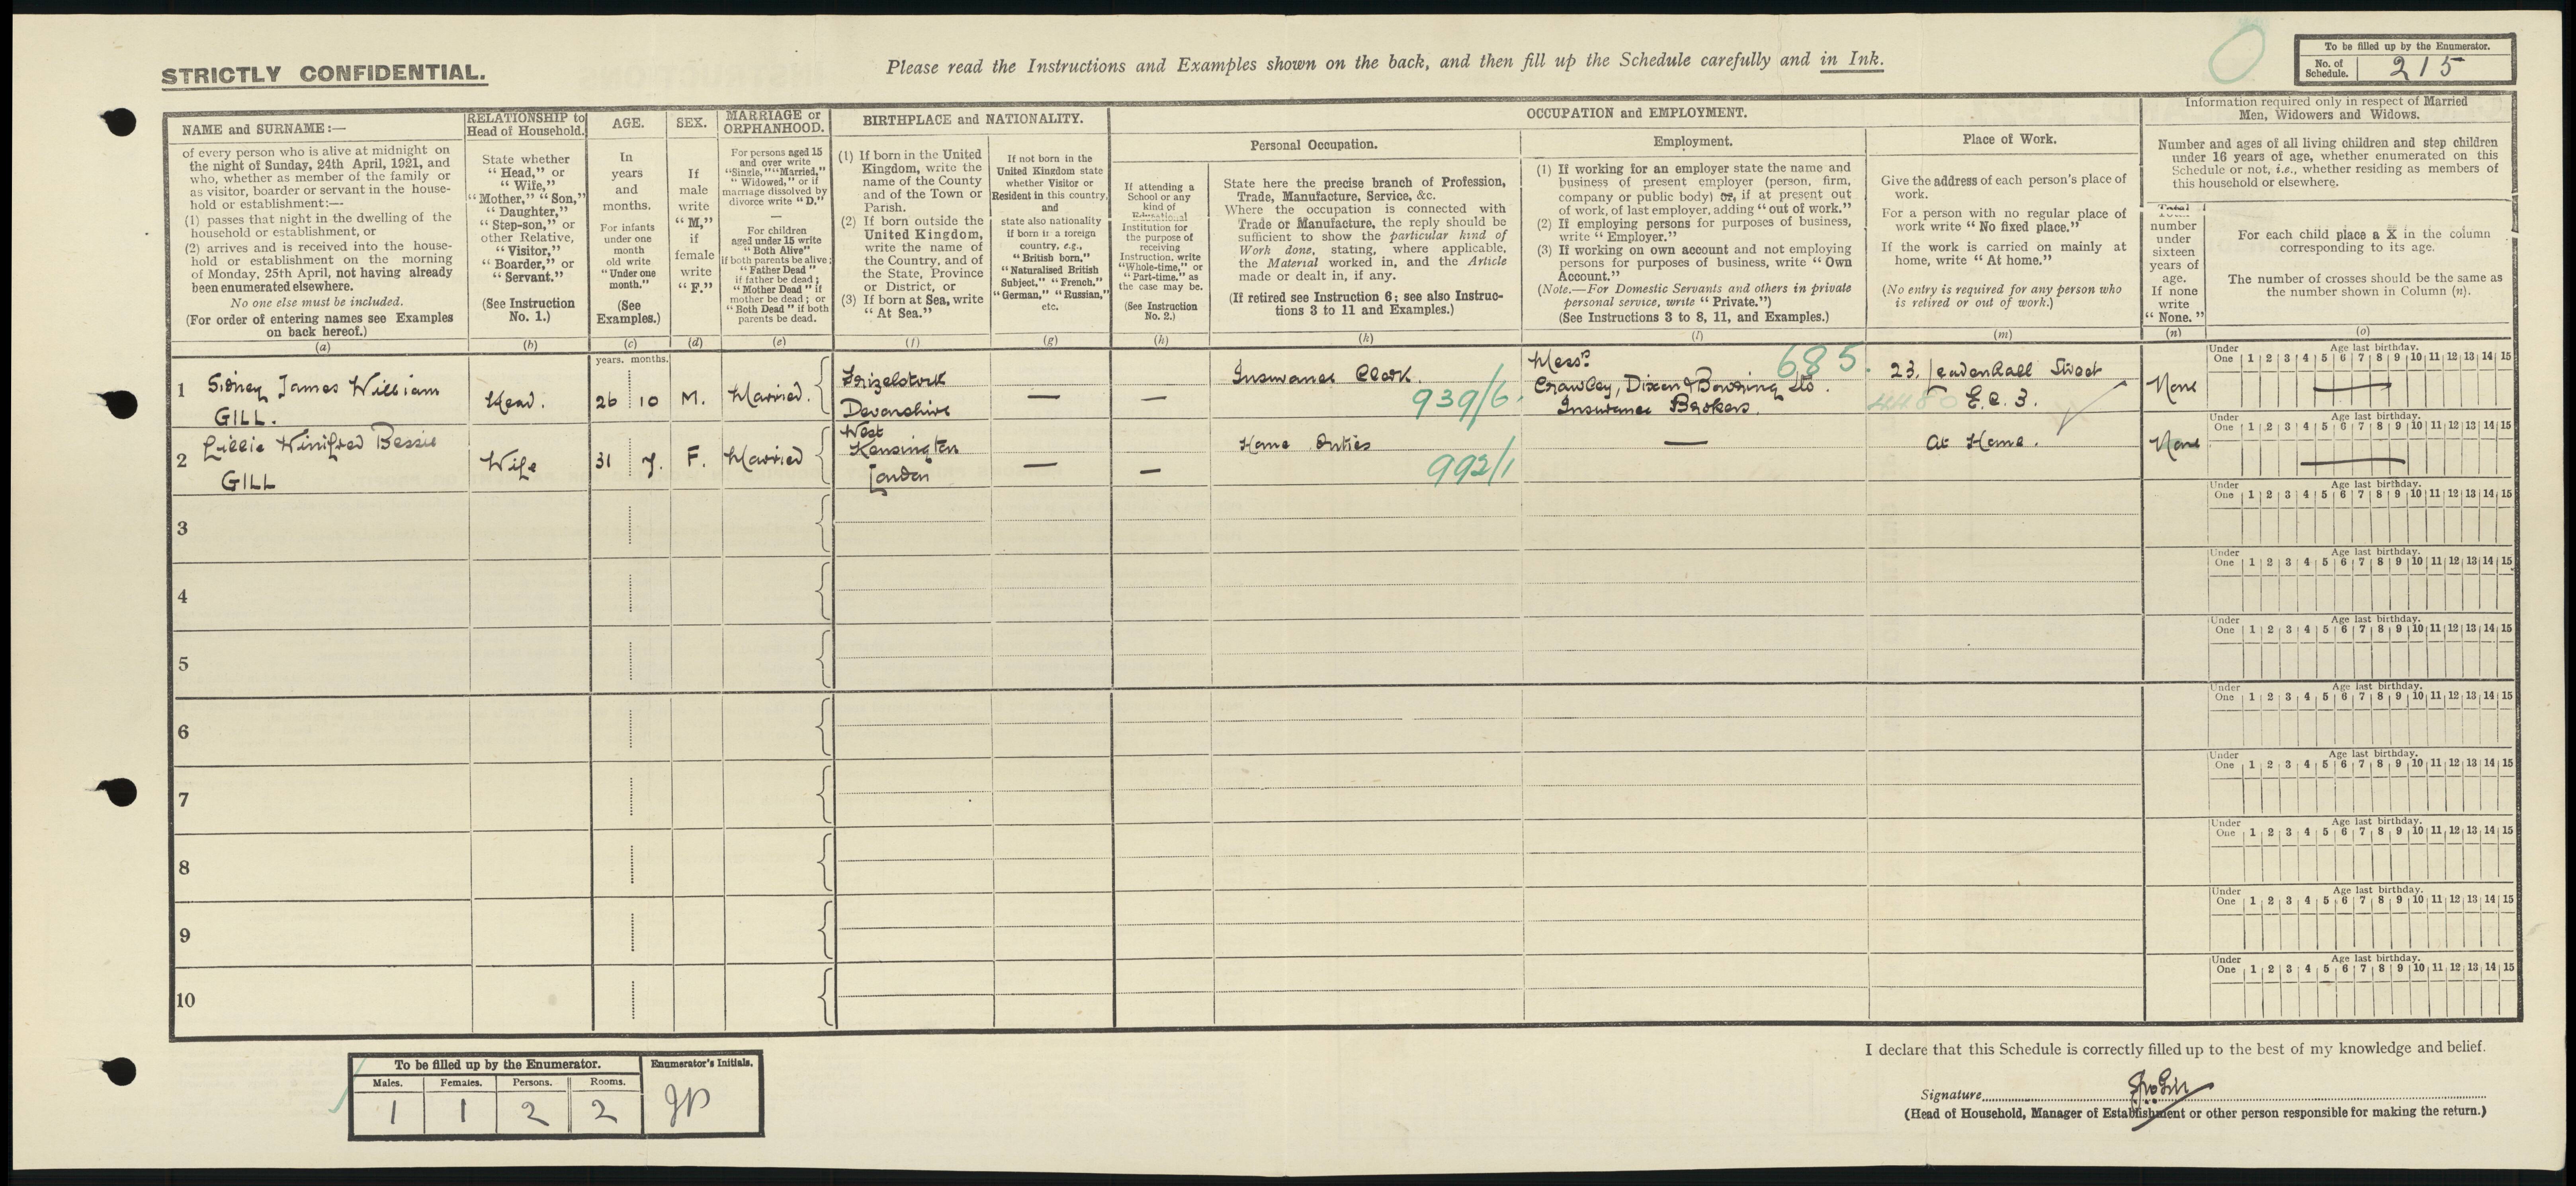 STRICTLY CONFIDENTIAL.
Please read the Instructions and Examples shown on the back, and then fill up the Schedule carefully and in Ink.
To be filled up by the Enumerator.
No. of Schedule. 215
NAME and SURNAME:—
of every person who is alive at midnight on
the night of Sunday, 24th April, 1921, and
who, whether as member of the family or
as visitor, boarder or servant in the house-
hold or establishment:—
(1) passes that night in the dwelling of the
household or establishment, or
(2) arrives and is received into the house-
hold or establishment on the morning
of Monday, 25th April, not having already
been enumerated elsewhere.
No one else must be included.
(For order of entering names see Examples
on back hereof.)
(a)
RELATIONSHIP to
Head of Household.
State whether
"Head," or
"Wife,"
"Mother," "Son,"
"Daughter,"
"Step-son," or
other Relative,
"Visitor,"
"Boarder," or
"Servant."
(See Instruction
No. 1.)
(b)
AGE.
In
years
and
months.
For infants
under one
month
old write
"Under one
month."
(See
Examples.)
(c)
SEX.
If
male
write
"M,"
if
female
write
"F."
(d)
MARRIAGE or
ORPHANHOOD.
For persons aged 15
and over write
"Single," "Married,"
"Widowed," or if
marriage dissolved by
divorce write "D."
—
For children
aged under 15 write
"Both Alive"
if both parents be alive;
"Father Dead"
if father be dead;
"Mother Dead" if
mother be dead; or
"Both Dead" if both
parents be dead.
(e)
BIRTHPLACE and NATIONALITY.
(1) If born in the United
Kingdom, write the
name of the County
and of the Town or
Parish.
(2) If born outside the
United Kingdom,
write the name of
the Country, and of
the State, Province
or District, or
(3) If born at Sea, write
"At Sea."
(f)
If not born in the
United Kingdom state
whether Visitor or
Resident in this country,
and
state also nationality
if born in a foreign
country, e.g.,
"British born,"
"Naturalised British
Subject," "French,"
"German," "Russian,"
etc.
(g)
OCCUPATION and EMPLOYMENT.
Personal Occupation.
If attending a
School or any
kind of
Educational
Institution for
the purpose of
receiving
Instruction, write
"Whole-time," or
"Part-time," as
the case may be.
(See Instruction
No. 2.)
(h)
State here the precise branch of Profession,
Trade, Manufacture, Service, &c.
Where the occupation is connected with
Trade or Manufacture, the reply should be
sufficient to show the particular kind of
Work done, stating, where applicable,
the Material worked in, and the Article
made or dealt in, if any.
(If retired see Instruction 6; see also Instruc-
tions 3 to 11 and Examples.)
(k)
Employment.
(1) If working for an employer state the name and
business of present employer (person, firm,
company or public body) or, if at present out
of work, of last employer, adding "out of work."
(2) If employing persons for purposes of business,
write "Employer."
(3) If working on own account and not employing
persons for purposes of business, write "Own
Account."
(Note.—For Domestic Servants and others in private
personal service, write "Private.")
(See Instructions 3 to 8, 11, and Examples.)
(l)
Place of Work.
Give the address of each person's place of
work.
For a person with no regular place of
work write "No fixed place."
If the work is carried on mainly at
home, write "At home."
(No entry is required for any person who
is retired or out of work.)
(m)
Information required only in respect of Married
Men, Widowers and Widows.
Number and ages of all living children and step children
under 16 years of age, whether enumerated on this
Schedule or not, i.e., whether residing as members of
this household or elsewhere.
Total
number
under
sixteen
years of
age.
If none
write
"None."
(n)
For each child place a X in the column
corresponding to its age.
The number of crosses should be the same as
the number shown in Column (n).
(o)
years. months.
1 Sidney James William
GILL.
Head. 26 10 M. Married.
Devonshire
— —
Insurance Clerk.
939/6.
Messrs 685.
Crawley, Dixon & Bowring Ltd.
Insurance Brokers.
23, Leadenhall Street
E.C. 3.
None
Under One 1 2 3 4 5 6 7 8 9 10 11 12 13 14 15
Age last birthday.
2 Lillie Winifred Bessie
GILL
Wife 31 7. F. Married
West
Kensington
London
— —
Home Duties
992/1
—
At Home.
None
Under One 1 2 3 4 5 6 7 8 9 10 11 12 13 14 15
Age last birthday.
3
Under One 1 2 3 4 5 6 7 8 9 10 11 12 13 14 15
Age last birthday.
4
Under One 1 2 3 4 5 6 7 8 9 10 11 12 13 14 15
Age last birthday.
5
Under One 1 2 3 4 5 6 7 8 9 10 11 12 13 14 15
Age last birthday.
6
Under One 1 2 3 4 5 6 7 8 9 10 11 12 13 14 15
Age last birthday.
7
Under One 1 2 3 4 5 6 7 8 9 10 11 12 13 14 15
Age last birthday.
8
Under One 1 2 3 4 5 6 7 8 9 10 11 12 13 14 15
Age last birthday.
9
Under One 1 2 3 4 5 6 7 8 9 10 11 12 13 14 15
Age last birthday.
10
Under One 1 2 3 4 5 6 7 8 9 10 11 12 13 14 15
Age last birthday.
To be filled up by the Enumerator.
Males. Females. Persons. Rooms.
1 1 2 2
Enumerator's Initials.
I declare that this Schedule is correctly filled up to the best of my knowledge and belief.
Signature
(Head of Household, Manager of Establishment or other person responsible for making the return.)